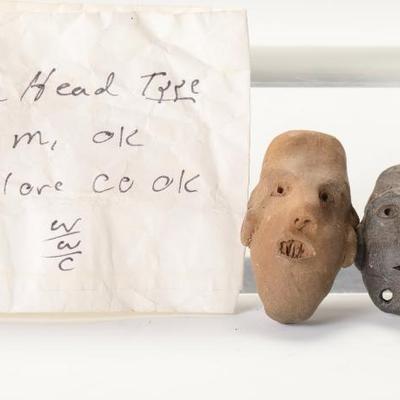 Head Type
m, OK
lore CO OK
W
W
C